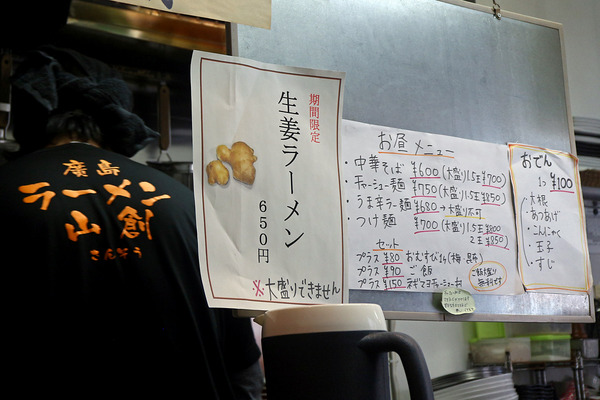 廣島
ラーメン
山創
さんそう
期間限定
生姜ラーメン
650円
※大盛りできません
お昼メニュー
・中華そば ¥600(大盛り1.5玉¥700)
・チャーシュー麺 ¥750(大盛り1.5玉¥850)
・うま辛ラー麺 ¥680→大盛り不可
・つけ麺 ¥700(大盛り1.5玉¥800
2玉¥850)
セット
プラス¥80 おむすび1ヶ(梅、昆布)
プラス¥90 ご飯
プラス¥150 ネギマヨチャーシュー丼
ご飯大盛り
無料です
おでん
1コ¥100
・大根
・あつあげ
・こんにゃく
・玉子
・すじ